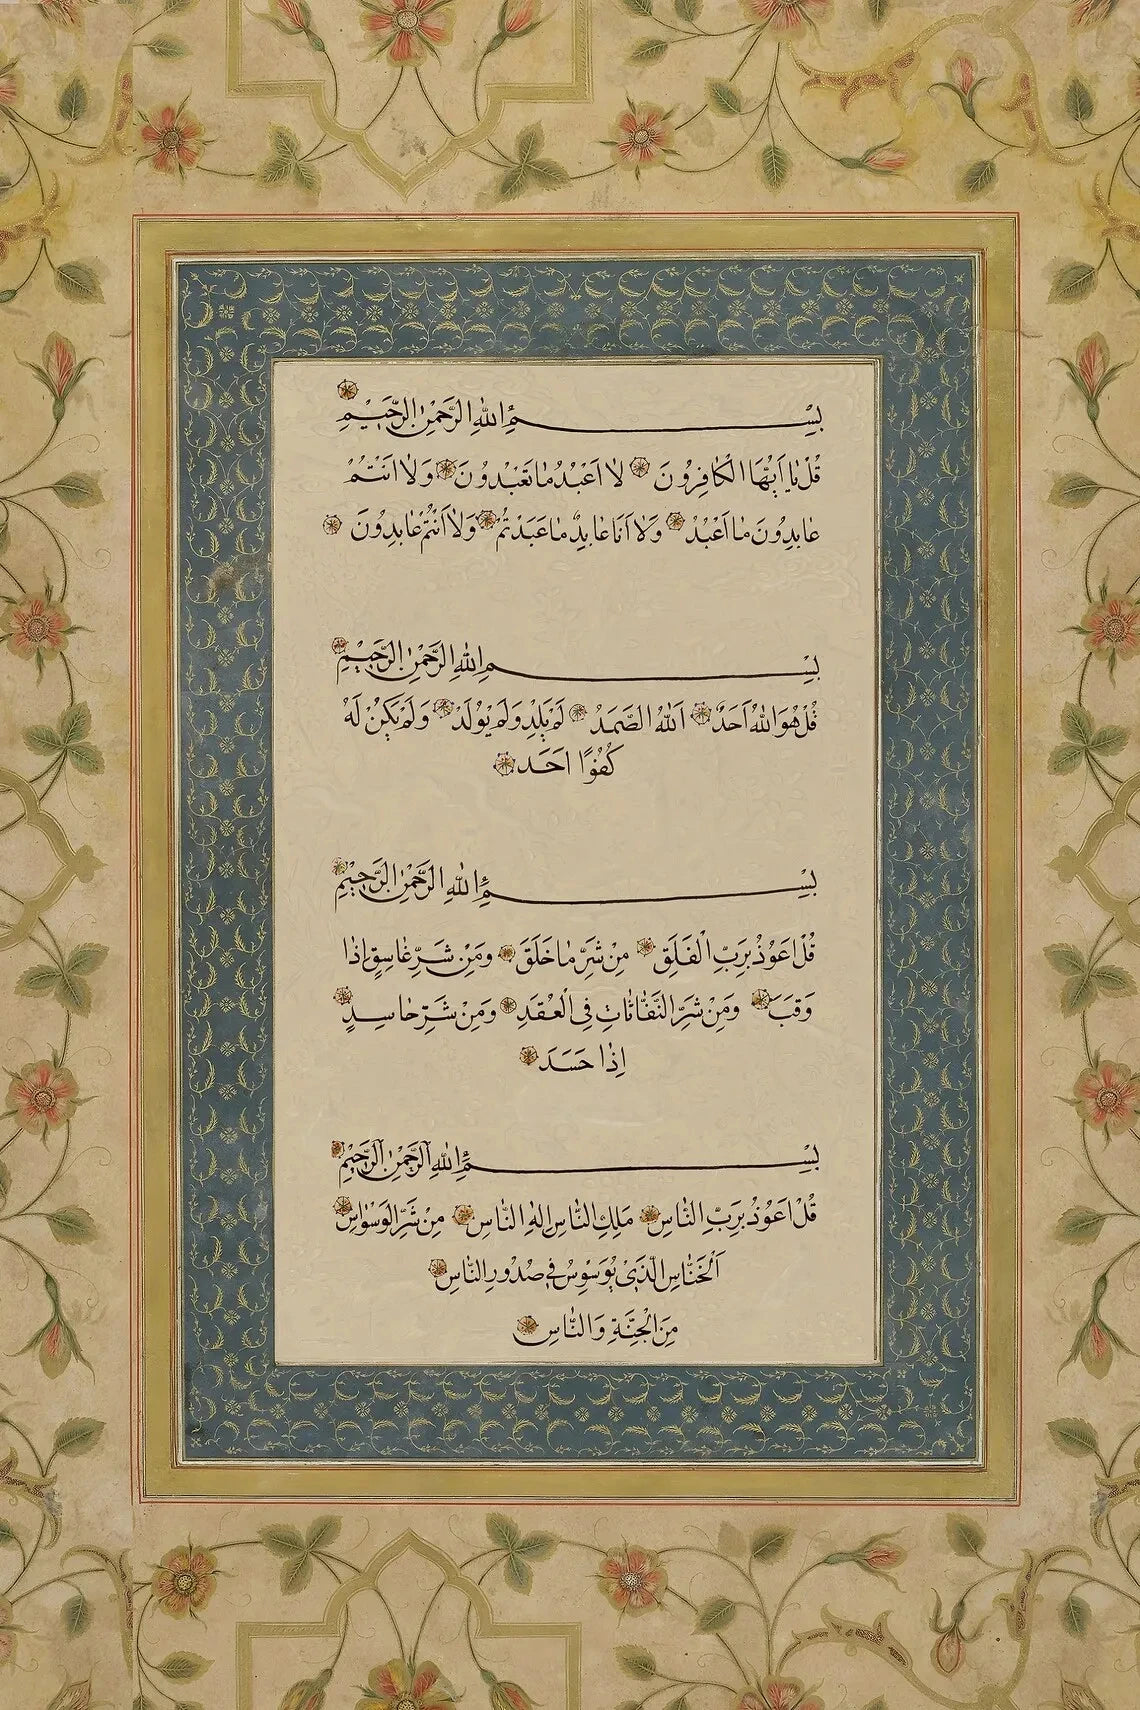 بِسْمِ اللهِ الرَّحْمٰنِ الرَّحِيْمِ
قُلْ يَا اَيُّهَا الْكَافِرُونَ لَا اَعْبُدُ مَا تَعْبُدُونَ وَلَا اَنْتُمْ
عَابِدُونَ مَا اَعْبُدُ وَلَا اَنَا عَابِدٌ مَا عَبَدْتُمْ وَلَا اَنْتُمْ عَابِدُونَ
بِسْمِ اللهِ الرَّحْمٰنِ الرَّحِيْمِ
قُلْ هُوَ اللهُ اَحَدٌ اَللهُ الصَّمَدُ لَمْ يَلِدْ وَلَمْ يُولَدْ وَلَمْ يَكُنْ لَهُ
كُفُوًا اَحَد
بِسْمِ اللهِ الرَّحْمٰنِ الرَّحِيْمِ
قُلْ اَعُوْذُ بِرَبِّ الْفَلَقِ مِنْ شَرِّ مَا خَلَقَ وَمِنْ شَرِّ غَاسِقٍ اِذَا
وَقَبَ وَمِنْ شَرِّ النَّفَّاثَاتِ فِى الْعُقَدِ وَمِنْ شَرِّ حَاسِدٍ
اِذَا حَسَدَ
بِسْمِ اللهِ الرَّحْمٰنِ الرَّحِيْمِ
قُلْ اَعُوْذُ بِرَبِّ النَّاسِ مَلِكِ النَّاسِ اِلٰهِ النَّاسِ مِنْ شَرِّ الْوَسْوَاسِ
اَلْخَنَّاسِ الَّذِى يُوَسْوِسُ فِى صُدُورِ النَّاسِ
مِنَ الْجِنَّةِ وَالنَّاسِ